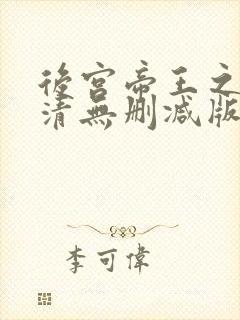 後宮帝王之
清無刪減版
李可偉